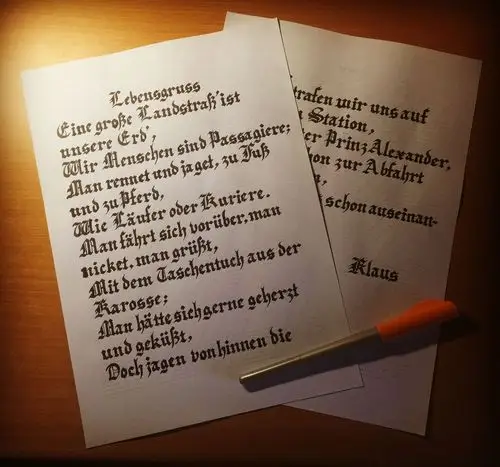 Lebensgruss
Eine große Landstraß' ist
unsere Erd',
Wir Menschen sind Passagiere;
Man rennet und jaget, zu Fuß
und zu Pferd,
Wie Läufer oder Kuriere.
Man fährt sich vorüber, man
nicket, man grüßt,
Mit dem Taschentuch aus der
Karosse;
Man hätte sich gerne geherzt
und geküßt,
Doch jagen von hinnen die
trafen wir uns auf
Station,
Prinz Alexander,
zur Abfahrt
schon auseinan-
Klaus